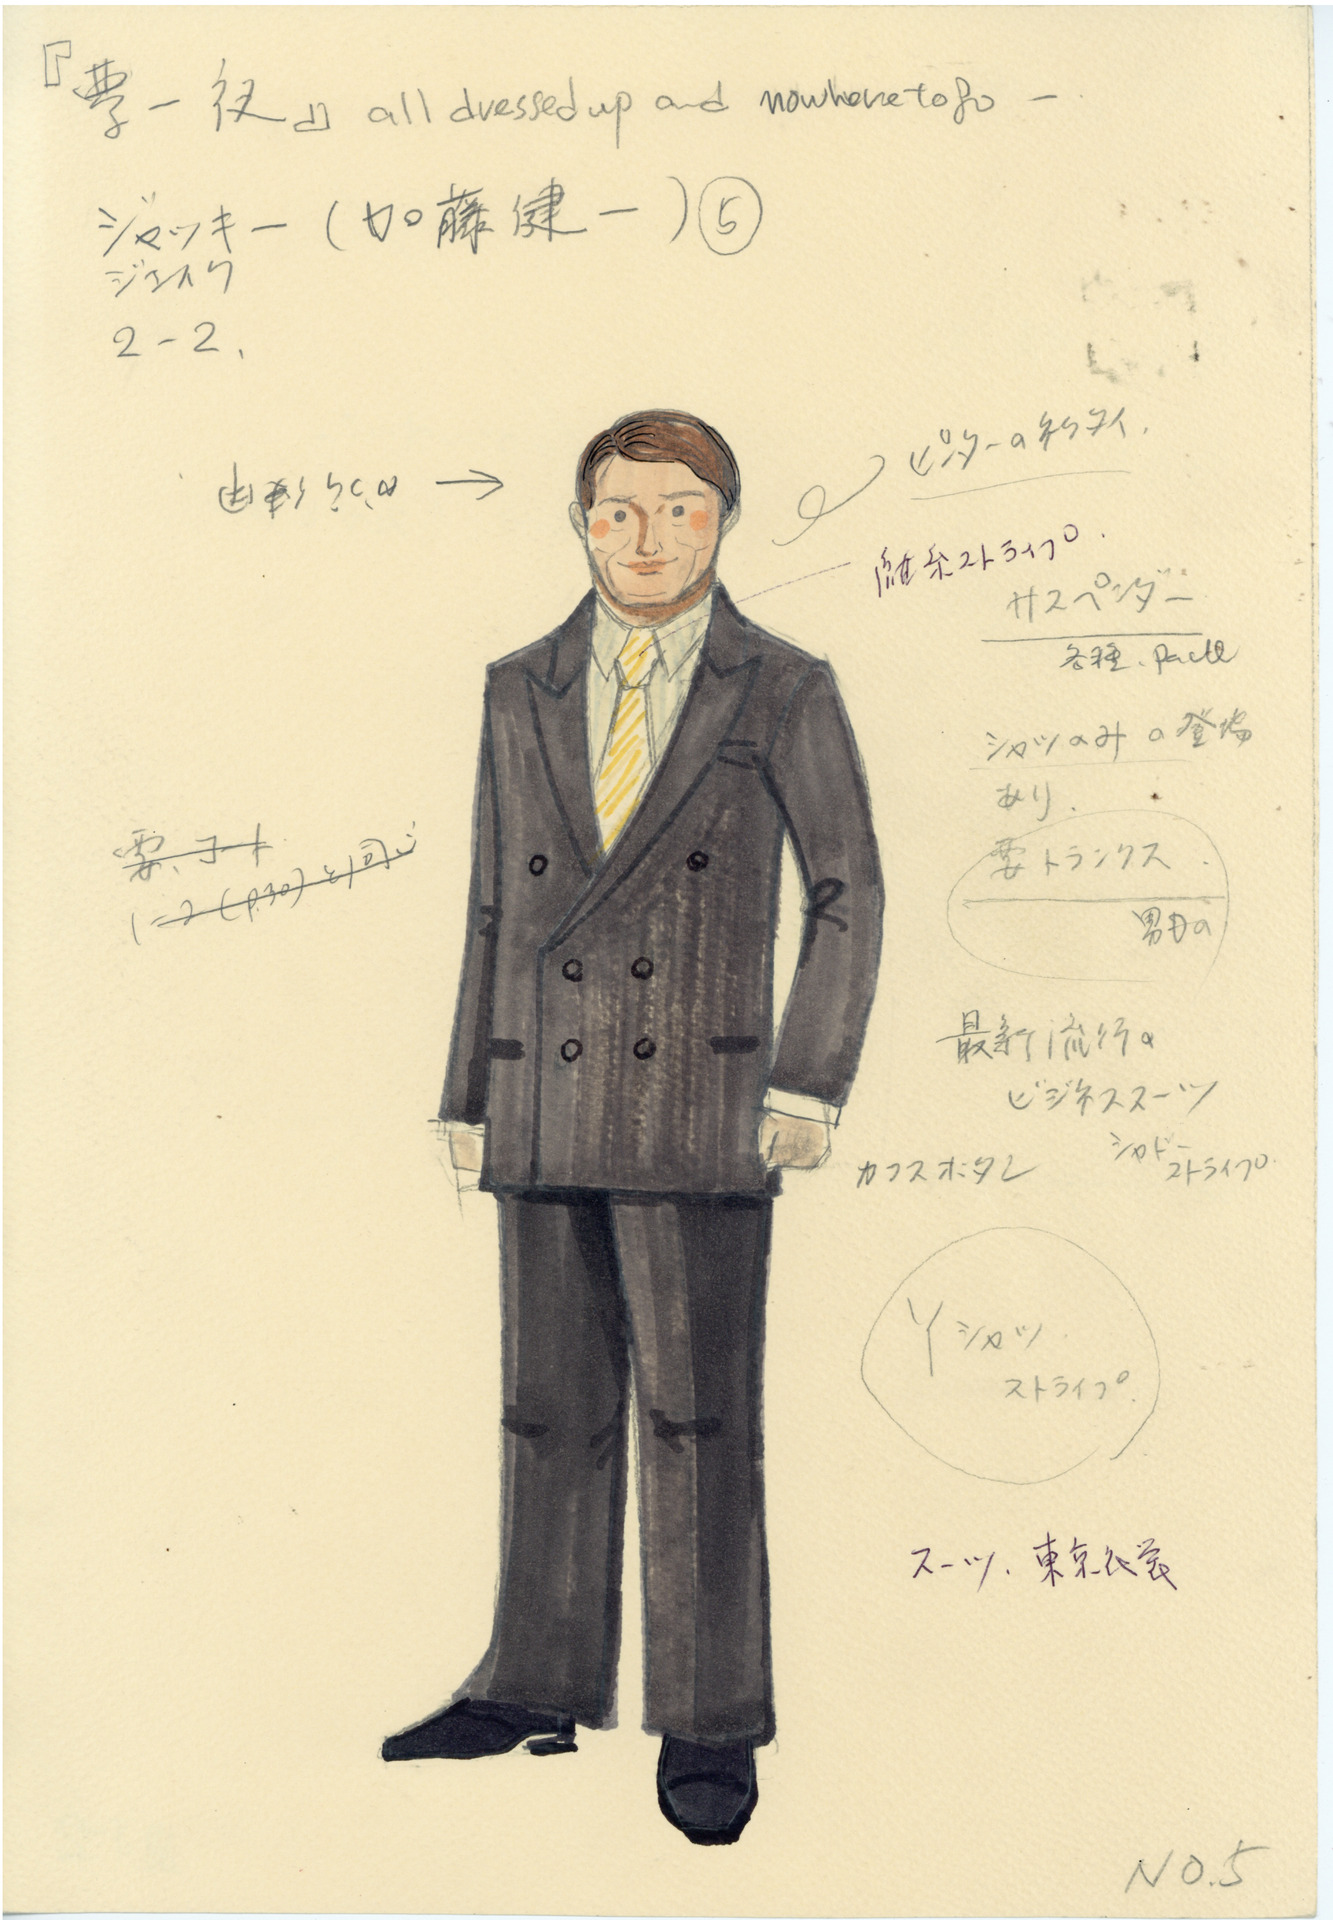 『夢一夜』 all dressed up and nowhere to go —
ジャッキー (加藤健一) ⑤
ジェイク
2-2.
ピンターのネクタイ.
ストライプ.
サスペンダー
各種.
シャツのみの登場
あり.
要、コート
1=2 (P.30)と同じ
要トランクス.
男もの
最新流行の
ビジネススーツ
シャドー
ストライプ
カフスボタン
Yシャツ
ストライプ.
スーツ. 東京衣裳
NO.5